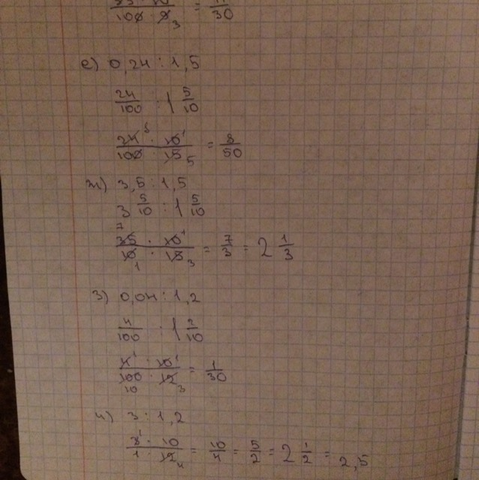 е) 0,24 : 1,5
24/100 : 1 5/10
24 · 10 / 100 · 15 = 8/50
ж) 3,5 : 1,5
3 5/10 : 1 5/10
35 · 10 / 10 · 15 = 7/3 = 2 1/3
з) 0,04 : 1,2
4/100 : 1 2/10
4 · 10 / 100 · 12 = 1/30
и) 3 : 1,2
3 · 10 / 1 · 12 = 10/4 = 5/2 = 2 1/2 = 2,5